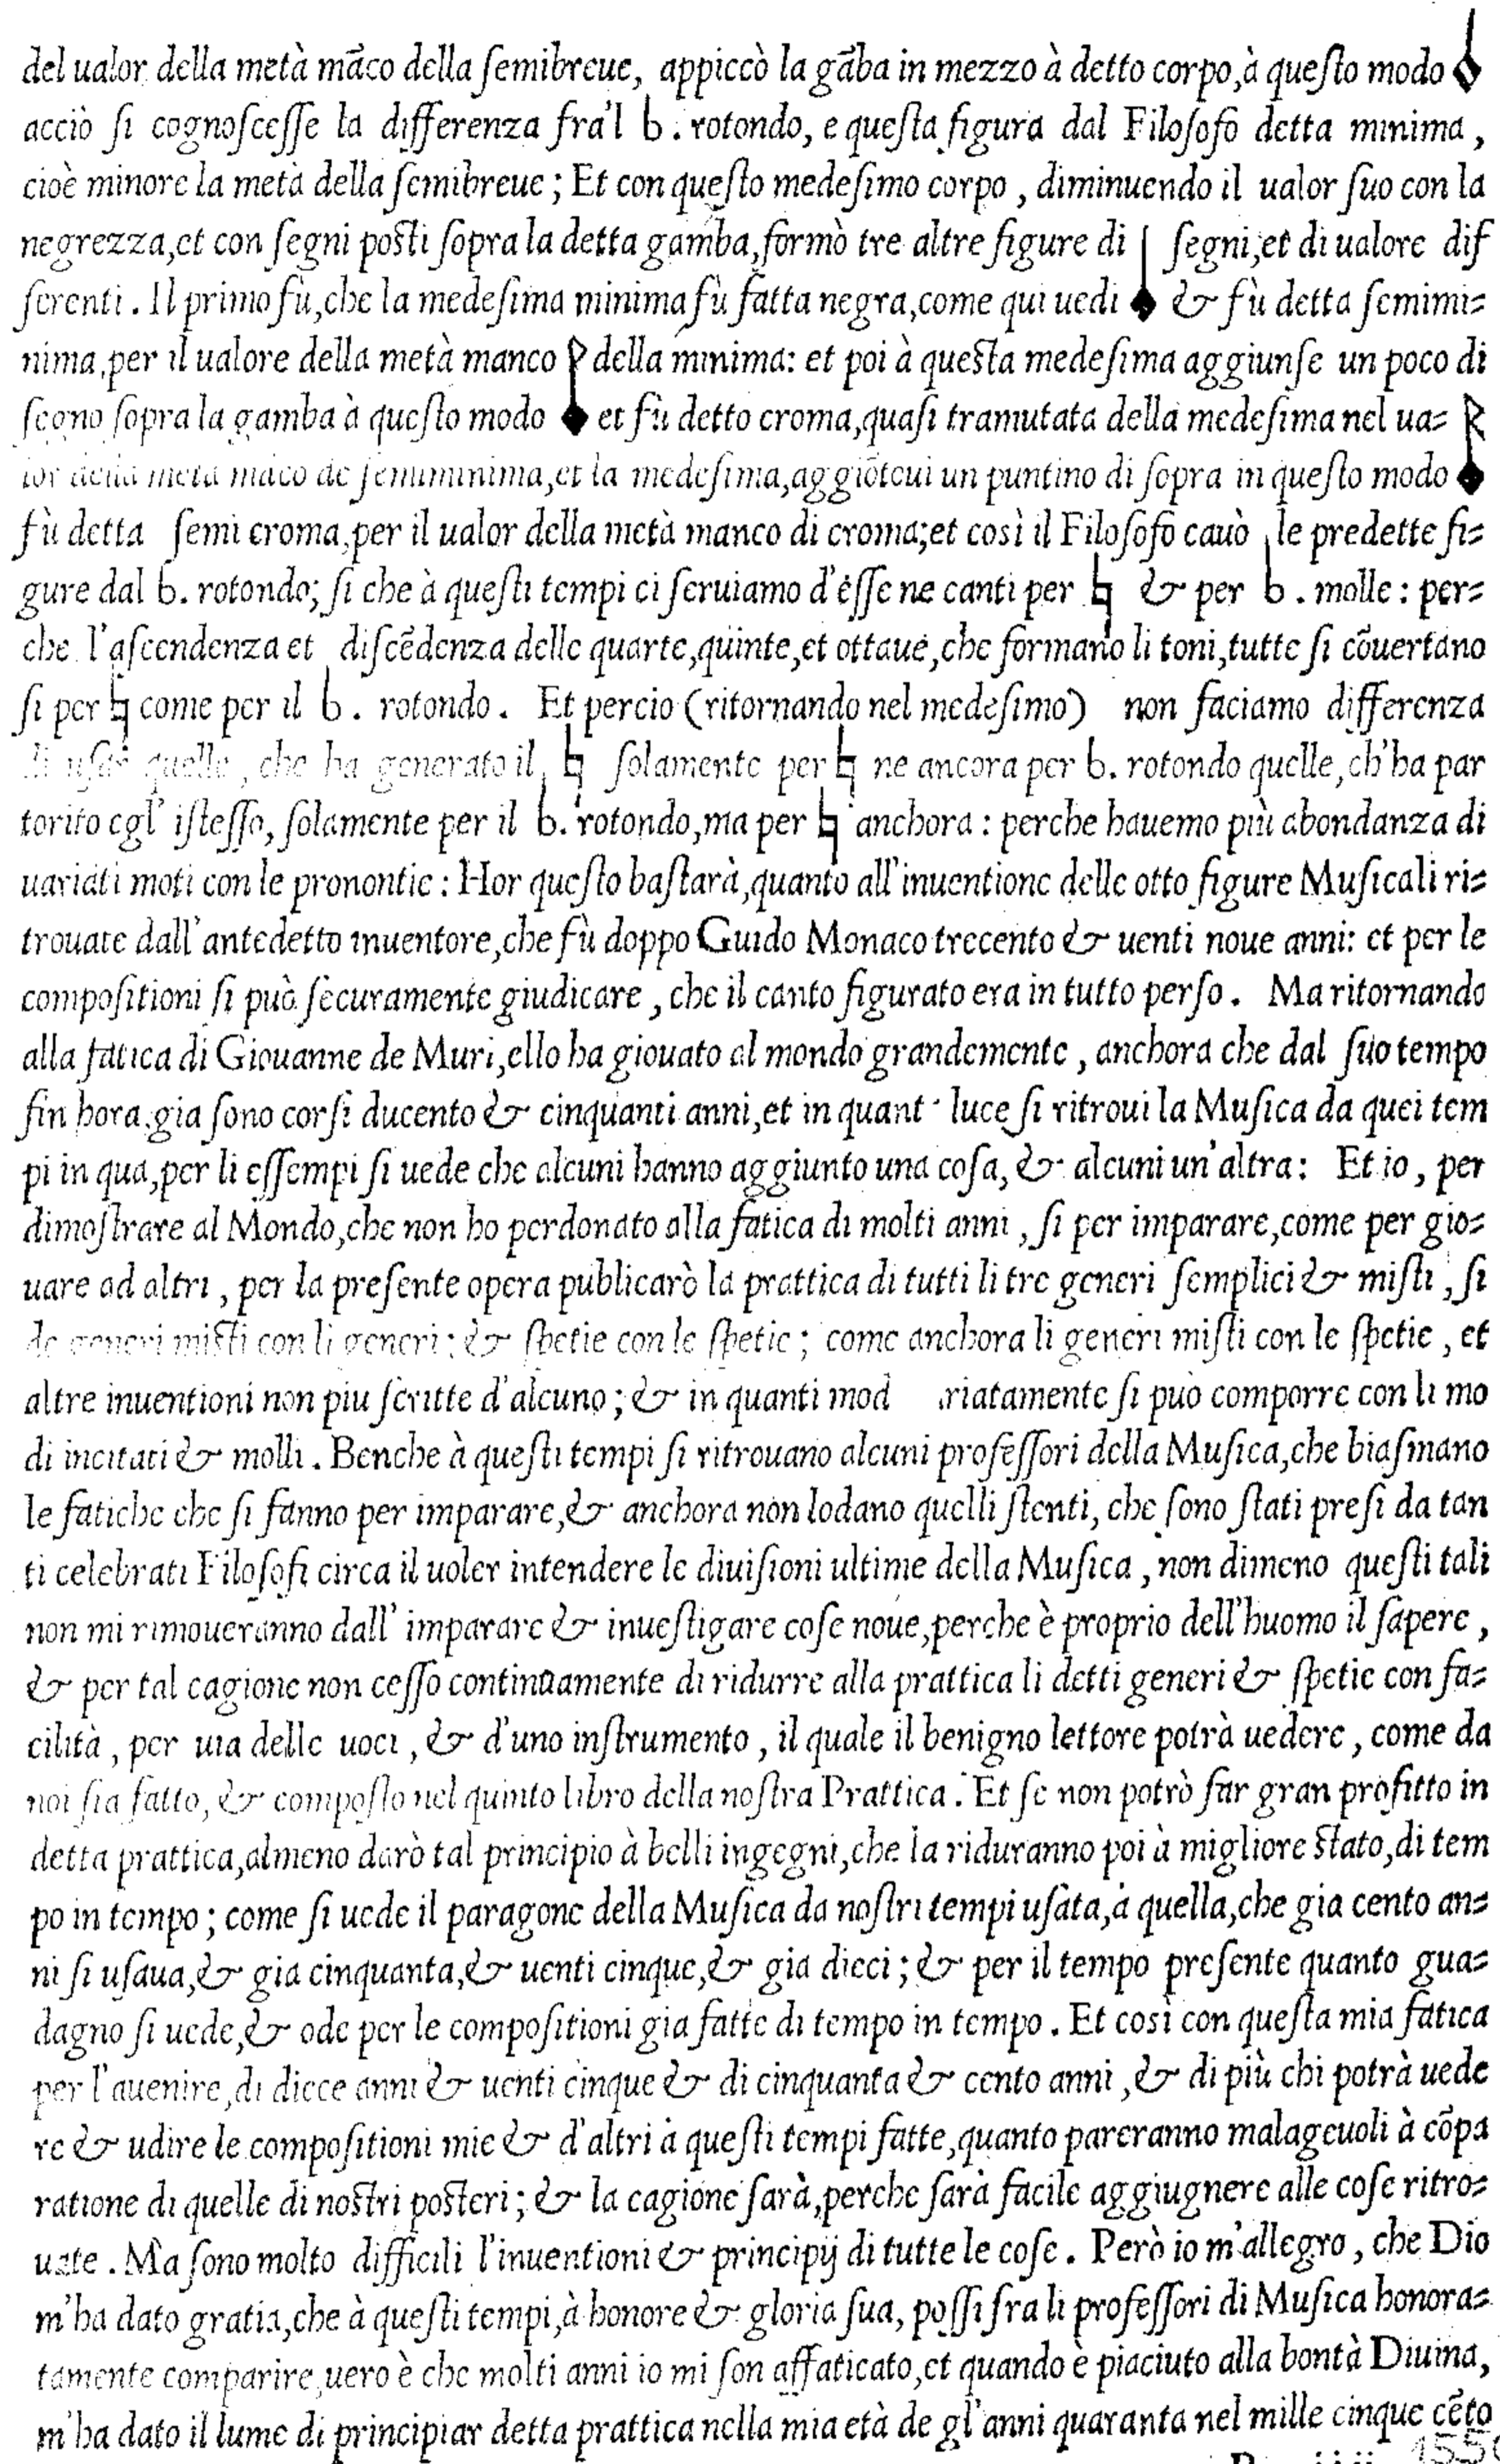 del ualor della metà mãco della ſemibreue, appiccò la gãba in mezzo à detto corpo,à queſto modo
acciò ſi cognoſceſſe la differenza fra'l b. rotondo, e queſta figura dal Filoſofo detta minima,
cioè minore la metà della ſemibreue; Et con queſto medeſimo corpo, diminuendo il ualor ſuo con la
negrezza,et con ſegni poſti ſopra la detta gamba,formò tre altre figure di ſegni,et di ualore dif
ferenti. Il primo fù,che la medeſima minima fù fatta negra,come qui uedi & fù detta ſemimi=
nima,per il ualore della metà manco della minima: et poi à queſta medeſima aggiunſe un poco di
ſegno ſopra la gamba à queſto modo et fù detto croma,quaſi tramutata della medeſima nel ua=
lor della metà mãco de ſemiminima,et la medeſima,aggiõtoui un puntino di ſopra in queſto modo
fù detta ſemi croma,per il ualor della metà manco di croma;et così il Filoſofo cauò le predette fi=
gure dal b. rotondo; ſi che à queſti tempi ci ſeruiamo d'eſſe ne canti per ♮ & per b. molle: per=
che l'aſcendenza et diſcẽdenza delle quarte,quinte,et ottaue,che formano li toni,tutte ſi cõuertano
ſi per ♮ come per il b. rotondo. Et percio (ritornando nel medeſimo) non faciamo differenza
di uſar quelle, che ha generato il ♮ ſolamente per ♮ ne ancora per b. rotondo quelle,ch'ha par
torito egl' iſteſſo, ſolamente per il b. rotondo,ma per ♮ anchora: perche hauemo più abondanza di
uariati moti con le pronontie: Hor queſto baſtarà,quanto all'inuentione delle otto figure Muſicali ri=
trouate dall'antedetto inuentore,che fù doppo Guido Monaco trecento & uenti noue anni: et per le
compoſitioni ſi può ſecuramente giudicare, che il canto figurato era in tutto perſo. Ma ritornando
alla fatica di Giouanne de Muri,ello ha giouato al mondo grandemente, anchora che dal ſuo tempo
fin hora gia ſono corſi ducento & cinquanti anni,et in quant luce ſi ritroui la Muſica da quei tem
pi in qua,per li eſſempi ſi uede che alcuni hanno aggiunto una coſa, & alcuni un'altra: Et io, per
dimoſtrare al Mondo,che non ho perdonato alla fatica di molti anni, ſi per imparare,come per gio=
uare ad altri, per la preſente opera publicarò la prattica di tutti li tre generi ſemplici & miſti, ſi
de generi miſti con li generi; & ſpetie con le ſpetie; come anchora li generi miſti con le ſpetie, et
altre inuentioni non piu ſcritte d'alcuno; & in quanti mod riatamente ſi può comporre con li mo
di incitati & molli. Benche à queſti tempi ſi ritrouano alcuni profeſſori della Muſica,che biaſmano
le fatiche che ſi fanno per imparare,& anchora non lodano quelli ſtenti, che ſono ſtati preſi da tan
ti celebrati Filoſofi circa il uoler intendere le diuiſioni ultime della Muſica, non dimeno queſti tali
non mi rimoueranno dall' imparare & inueſtigare coſe noue,perche è proprio dell'huomo il ſapere,
& per tal cagione non ceſſo continuamente di ridurre alla prattica li detti generi & ſpetie con fa=
cilità, per uia delle uoci, & d'uno inſtrumento, il quale il benigno lettore potrà uedere, come da
noi ſia fatto, & compoſto nel quinto libro della noſtra Prattica. Et ſe non potrò far gran profitto in
detta prattica,almeno darò tal principio à belli ingegni,che la riduranno poi à migliore ſtato,di tem
po in tempo; come ſi uede il paragone della Muſica da noſtri tempi uſata,à quella,che gia cento an=
ni ſi uſaua,& gia cinquanta,& uenti cinque,& gia dieci; & per il tempo preſente quanto gua=
dagno ſi uede,& ode per le compoſitioni gia fatte di tempo in tempo. Et così con queſta mia fatica
per l'auenire,di diece anni & uenti cinque & di cinquanta & cento anni, & di più chi potrà uede
re & udire le compoſitioni mie & d'altri à queſti tempi fatte,quanto pareranno malageuoli à cõpa
ratione di quelle di noſtri poſteri; & la cagione ſarà,perche ſarà facile aggiugnere alle coſe ritro=
uate. Ma ſono molto difficili l'inuentioni & principij di tutte le coſe. Però io m'allegro, che Dio
m'ha dato gratia,che à queſti tempi,à honore & gloria ſua, poſſi fra li profeſſori di Muſica honora=
tamente comparire,uero è che molti anni io mi ſon affaticato,et quando è piaciuto alla bontà Diuina,
m'ha dato il lume di principiar detta prattica nella mia età de gl'anni quaranta nel mille cinque cẽto